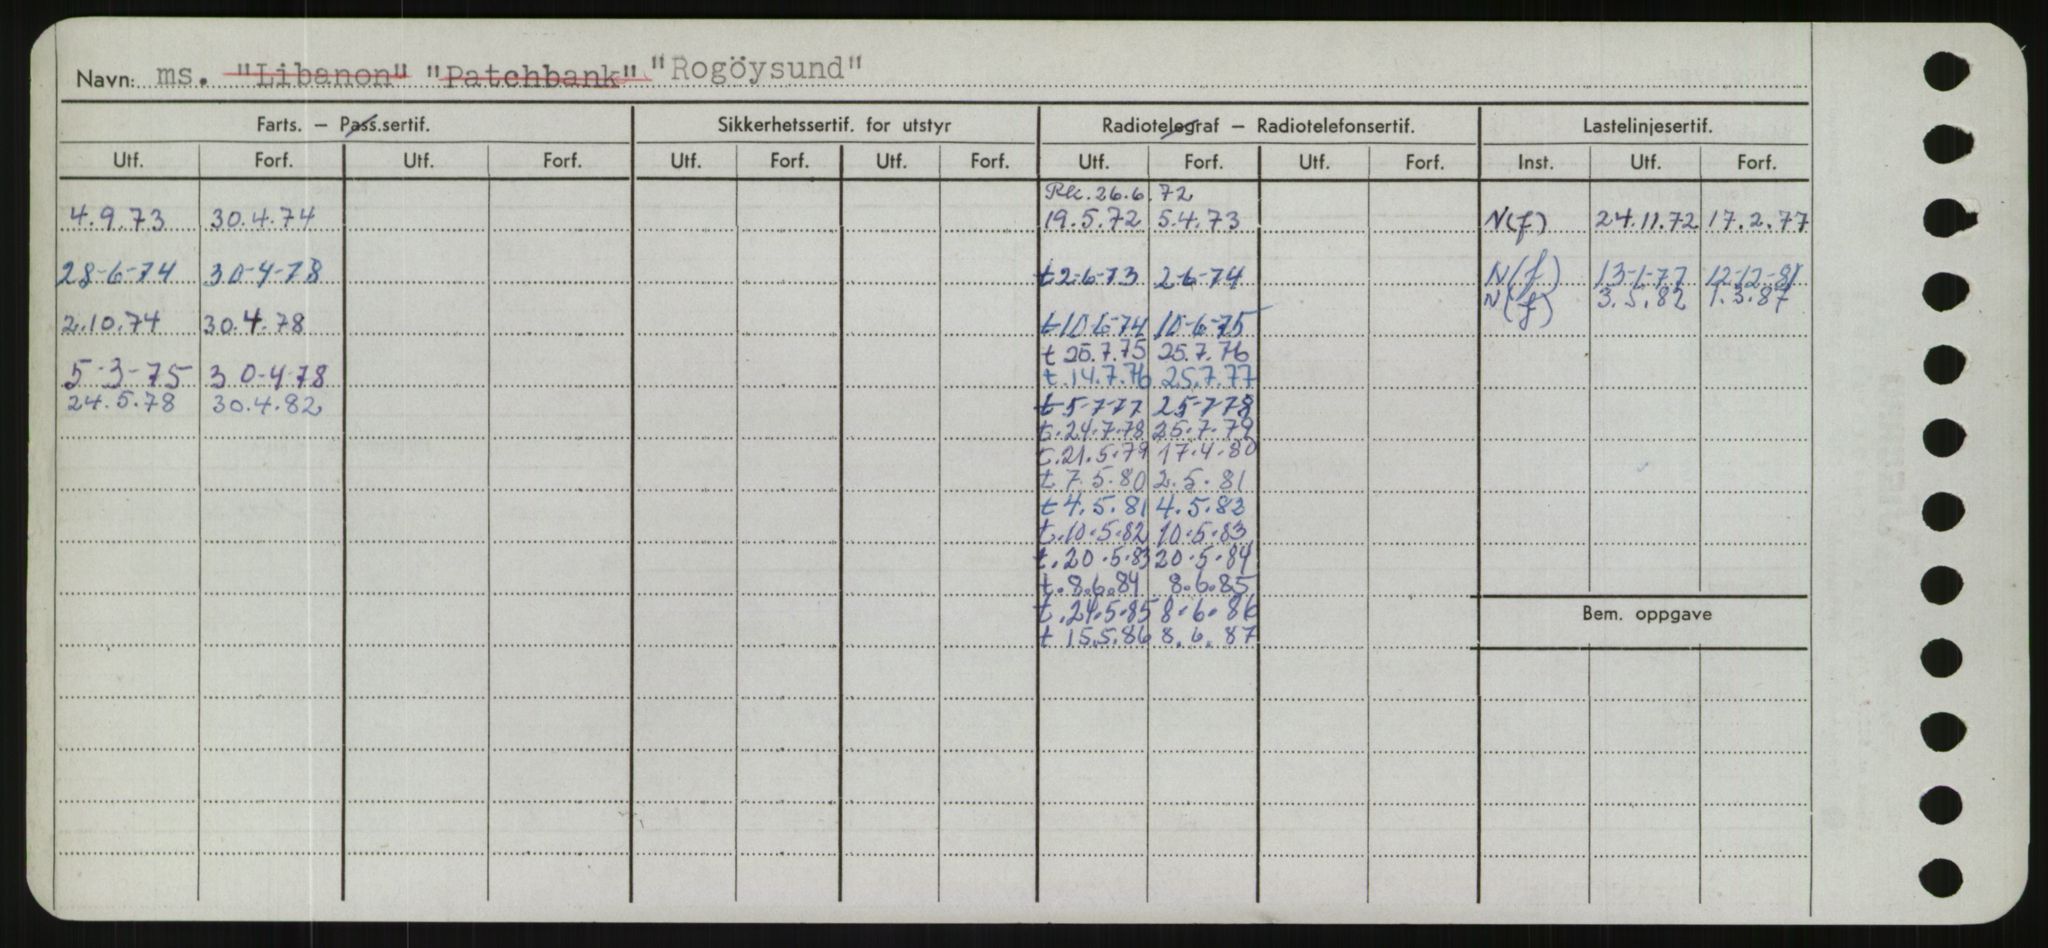 Navn: ms. "Libanon" "Patchbank" "Rogöysund"
Farts. – Pass.sertif. Sikkerhetssertif. for utstyr Radiotelegraf – Radiotelefonsertif. Lastelinjesertif.
Utf. Forf. Utf. Forf. Utf. Forf. Utf. Forf. Utf. Forf. Utf. Forf. Inst. Utf. Forf.
26.6.72
4.9.73 30.4.74 19.5.72 5.4.73 N(f) 24.11.72 17.2.77
28-6-74 30-4-78 t 2-6-73 2-6-74 N(f) 13-1-77 12-12-81
N(f) 3.5.82 1.3.87
2.10.74 30.4.78 t 10-6-74 10-6-75
t 25.7.75 25.7.76
5-3-75 30-4-78 t. 14.7.76 25.7.77
24.5.78 30.4.82 t 5-7-77 25-7-78
t. 24.7.78 25.7.79
t. 21.5.79 17.4.80
t 7.5.80 2.5.81
t 4.5.81 4.5.82
t. 10.5.82 10.5.83
t. 20.5.83 20.5.84
t. 8.6.84 8.6.85
t. 24.5.85 8.6.86
t 15.5.86 8.6.87
Bem. oppgave